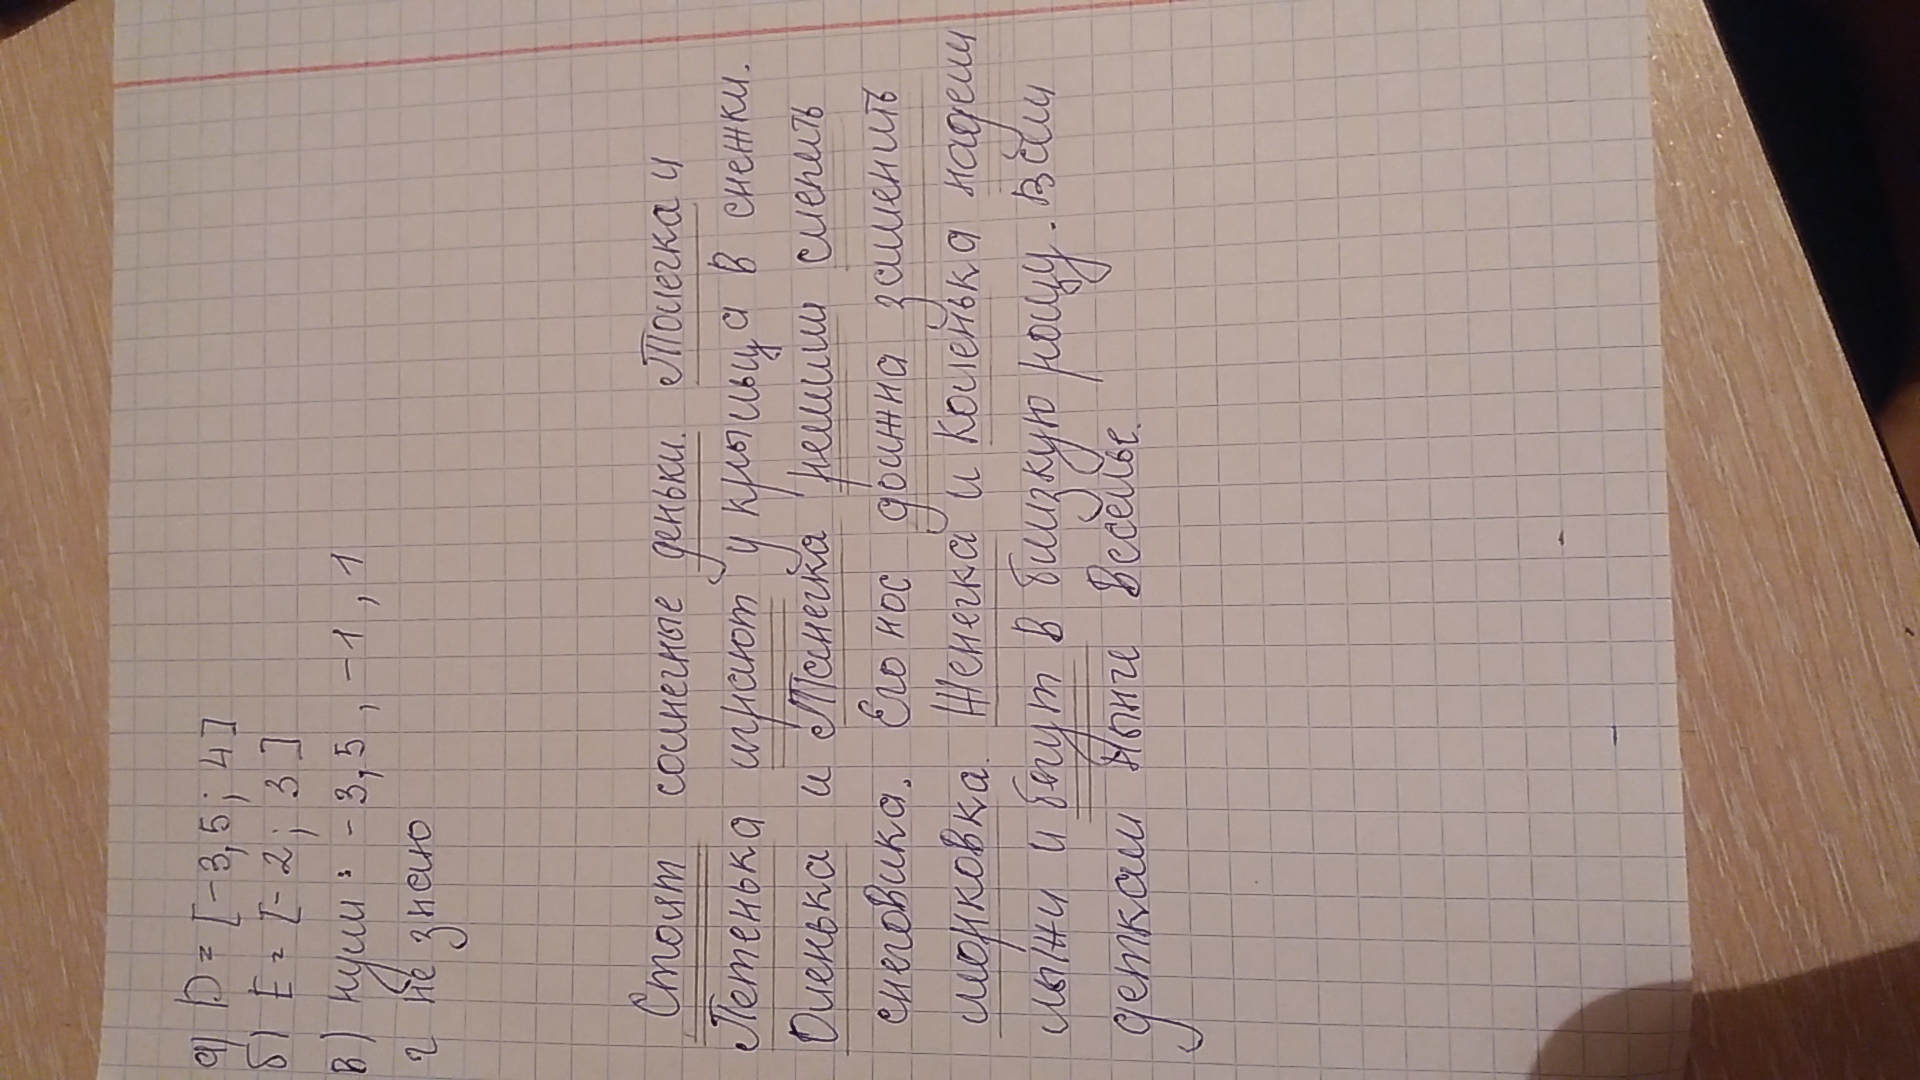 а) D = [-3,5; 4]
б) E = [-2; 3]
в) нули: -3,5, -1, 1
г не знаю
Стоят солнечные деньки. Толечка и
Петенька играют у крыльца в снежки.
Оленька и Танечка решили слепить
снеговика. Его нос должна заменить
морковка. Женечка и Коленька надели
лыжи и бегут в близкую рощу. Всем
деткам нынче веселье.